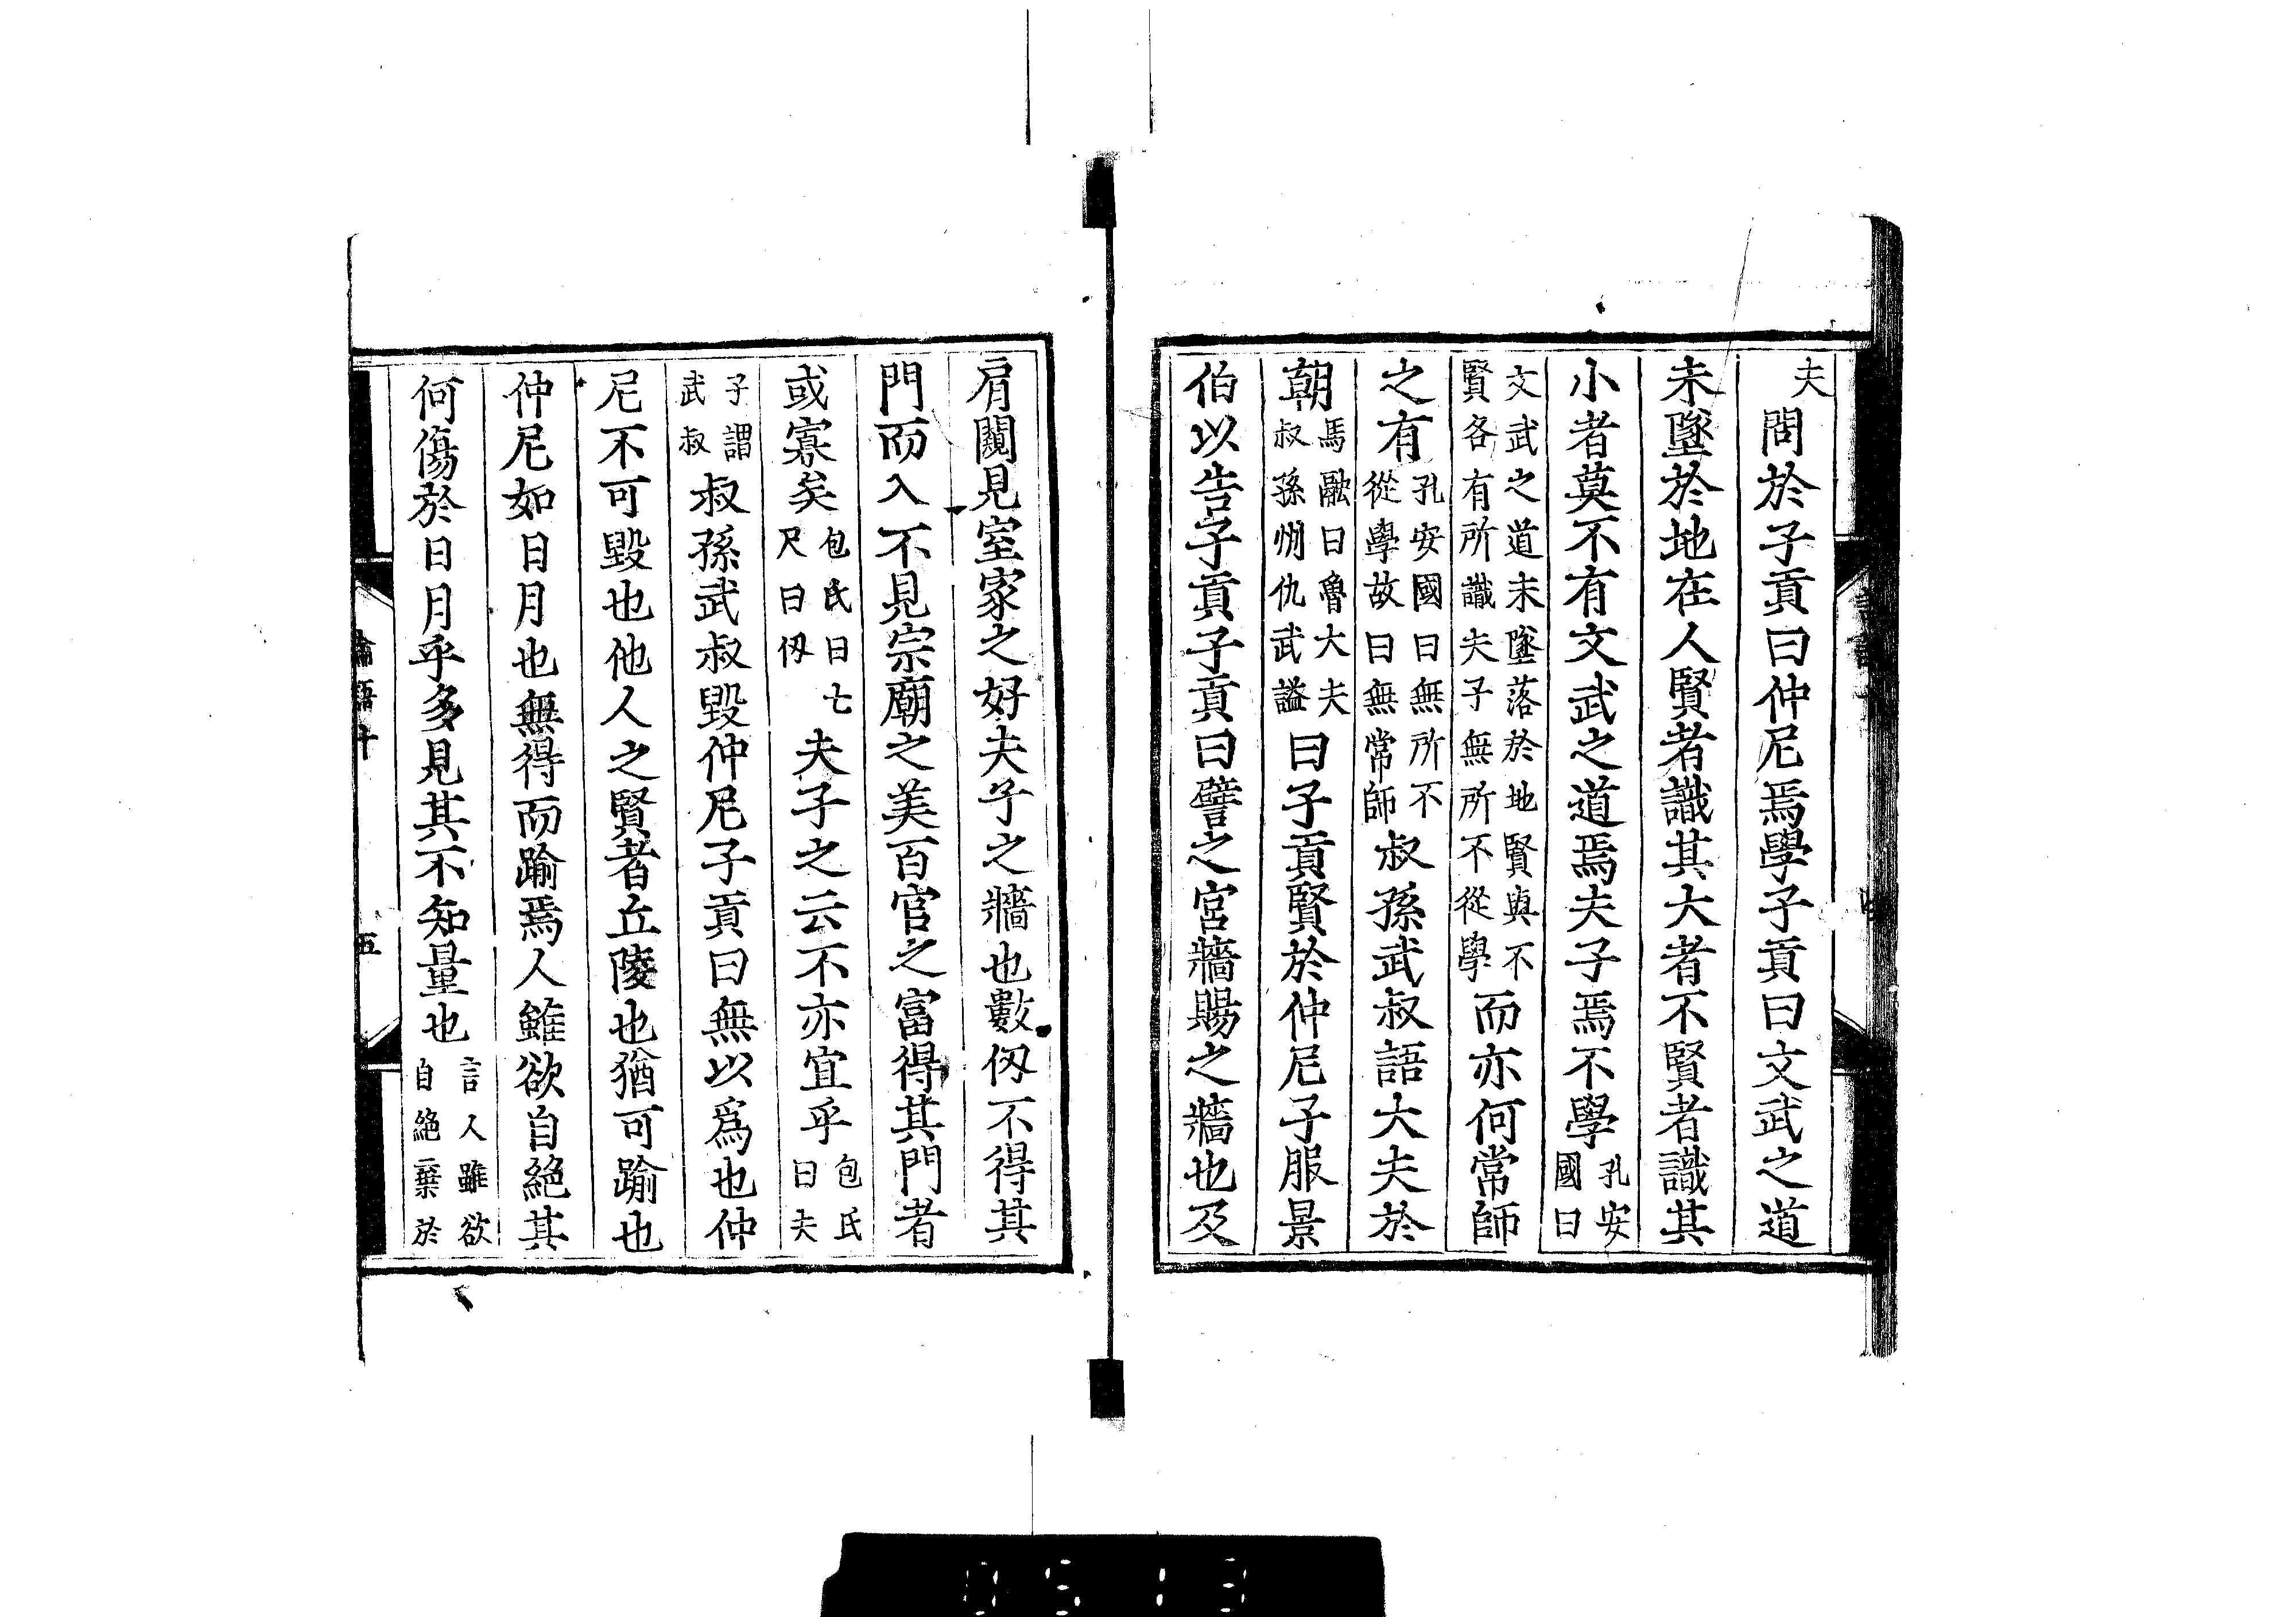 夫問於子貢曰仲尼焉學子貢曰文武之道
未墜於地在人賢者識其大者不賢者識其
小者莫不有文武之道焉夫子焉不學孔安國曰
文武之道未墜落於地賢與不賢各有所識夫子無所不從學而亦何常師
之有孔安國曰無所不從學故曰無常師叔孫武叔語大夫於
朝馬融曰魯大夫叔孫州仇武謚曰子貢賢於仲尼子服景
伯以告子貢子貢曰譬之宮牆賜之牆也及
肩闚見室家之好夫子之牆也數仞不得其
門而入不見宗廟之美百官之富得其門者
或寡矣包氏曰七尺曰仞夫子之云不亦宜乎包氏曰夫
子謂武叔叔孫武叔毀仲尼子貢曰無以爲也仲
尼不可毀也他人之賢者丘陵也猶可踰也
仲尼如日月也無得而踰焉人雖欲自絕其
何傷於日月乎多見其不知量也言人雖欲自絕棄於
論語十
五
0513